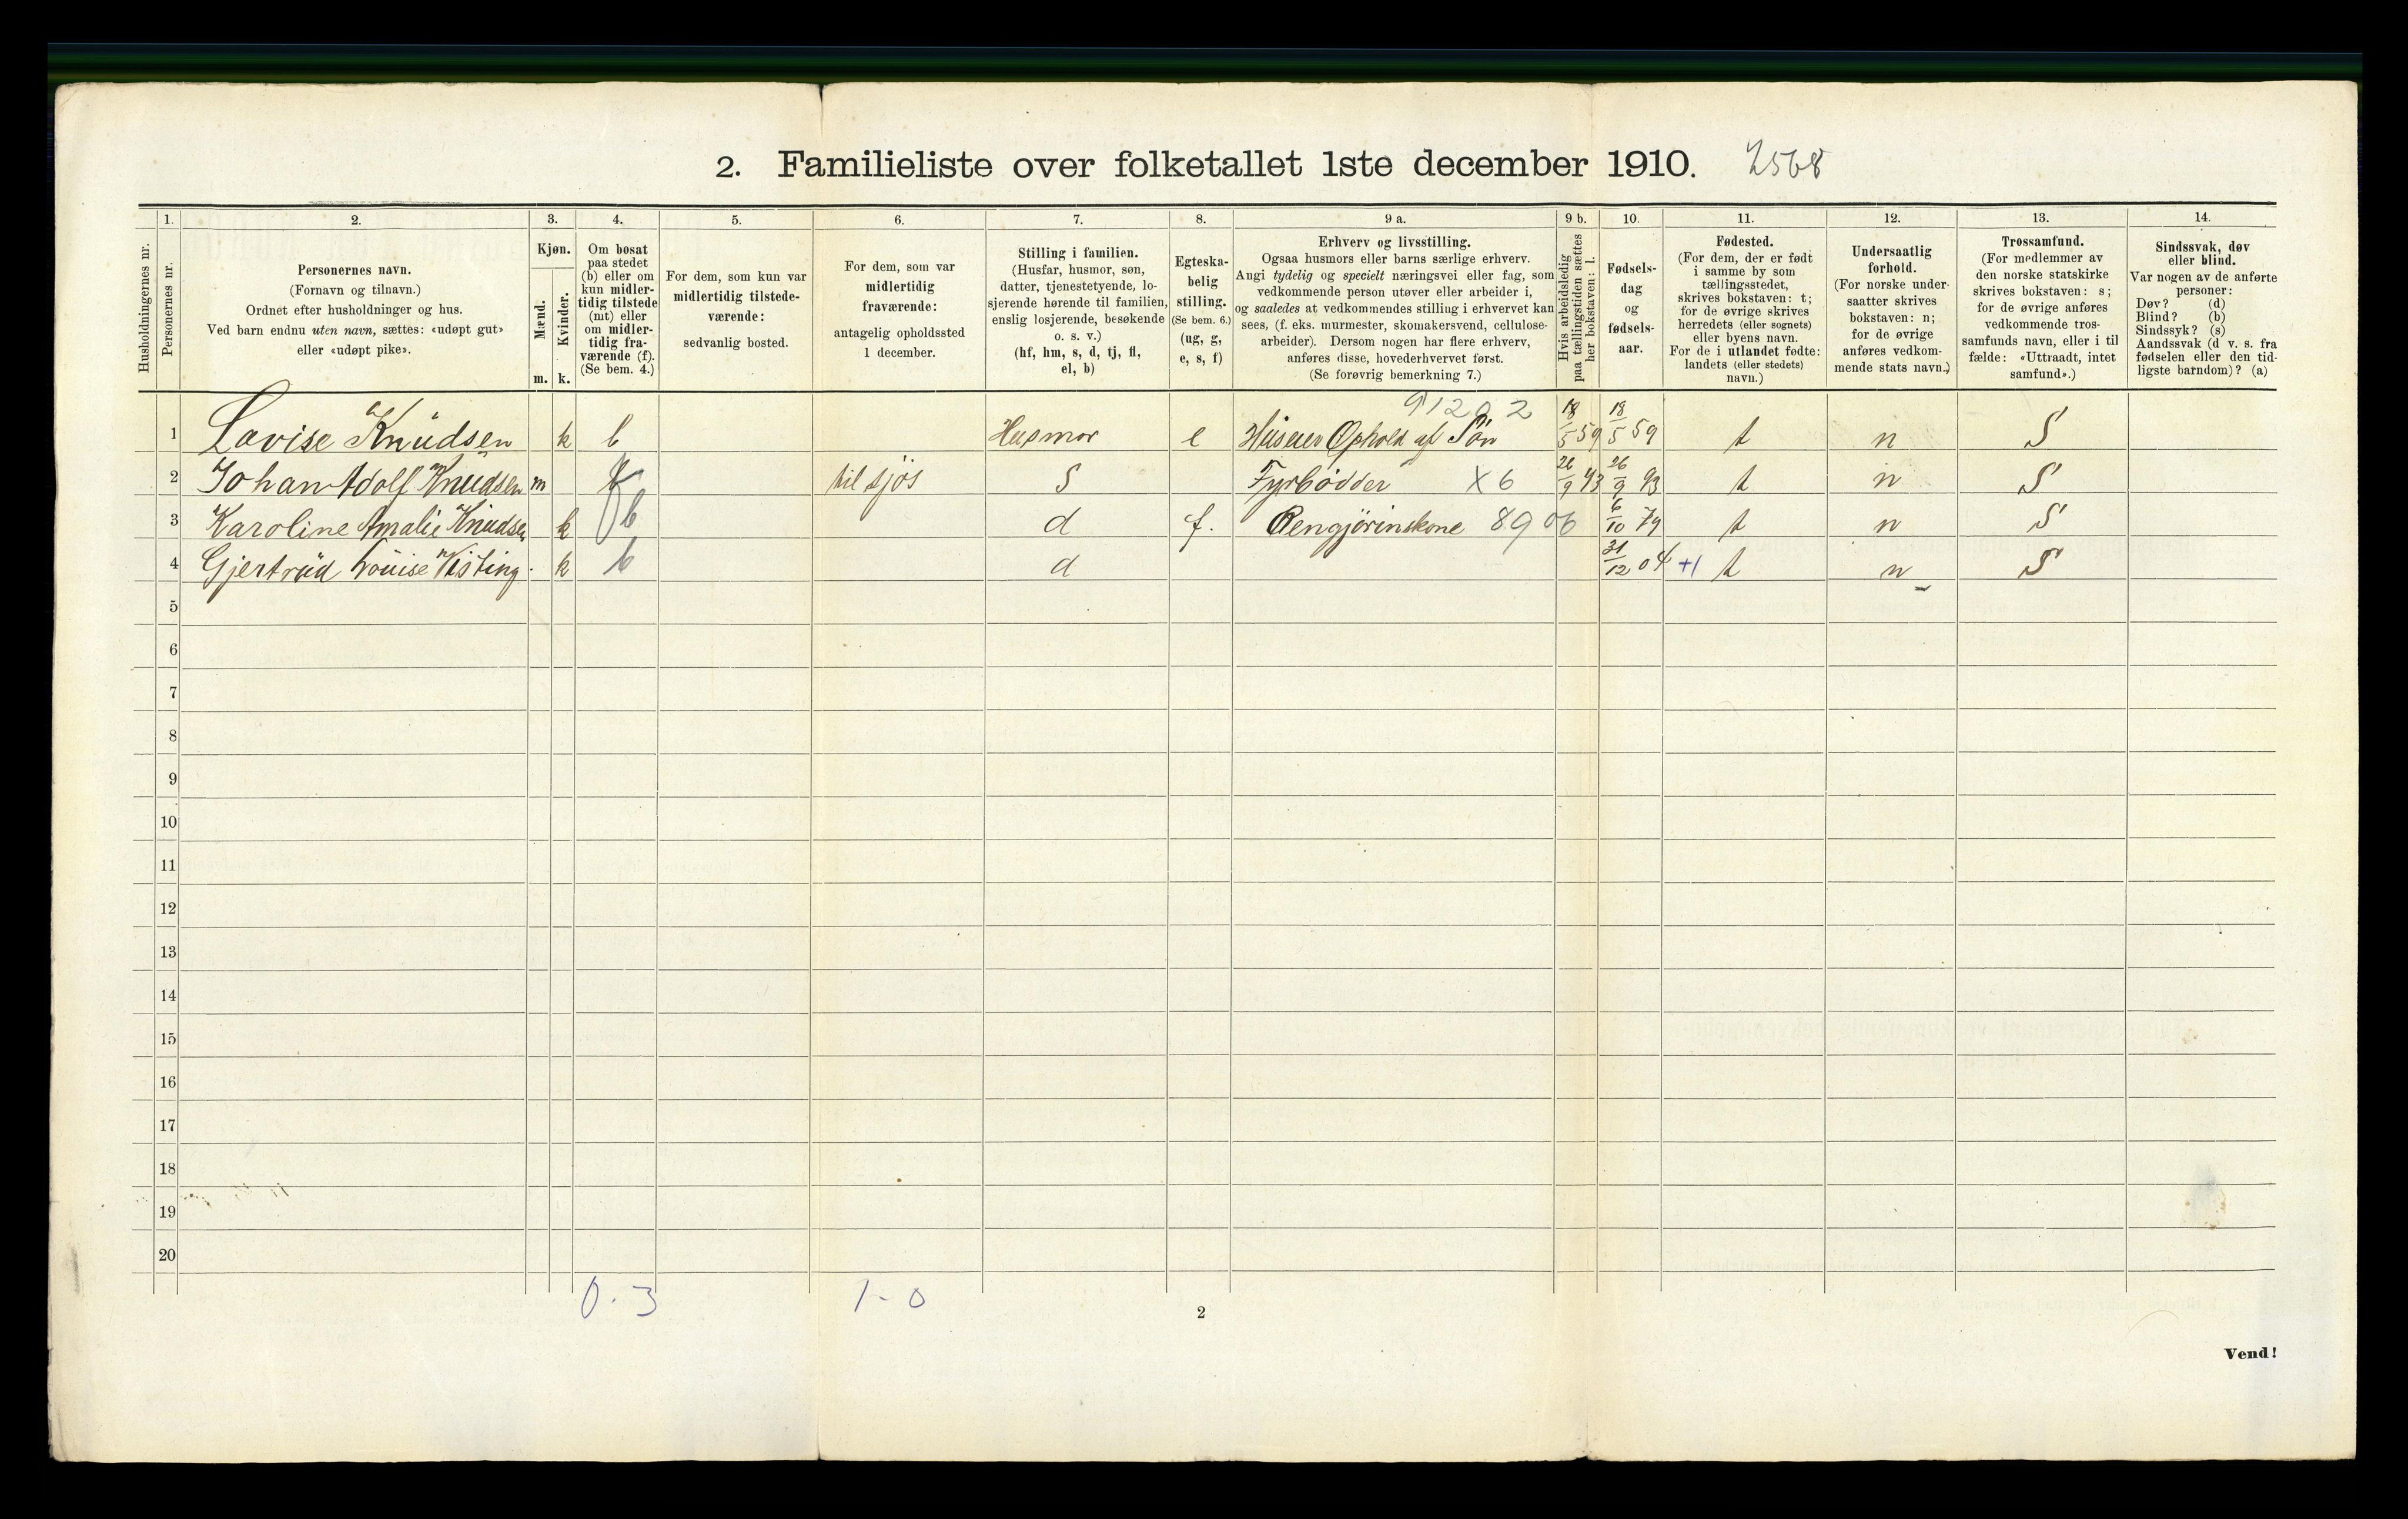 2. Familieliste over folketallet 1ste december 1910. 2568
1. 2. 3. 4. 5. 6. 7. 8. 9 a. 9 b. 10. 11. 12. 13. 14.
Husholdningernes nr.
Personernes nr.
Personernes navn.
(Fornavn og tilnavn.)
Ordnet efter husholdninger og hus.
Ved barn endnu uten navn, sættes: «udøpt gut»
eller «udøpt pike».
Kjøn.
Mænd.
Kvinder.
m. k.
Om bosat
paa stedet
(b) eller om
kun midler-
tidig tilstede
(mt) eller
om midler-
tidig fra-
værende (f).
(Se bem. 4.)
For dem, som kun var
midlertidig tilstede-
værende:
sedvanlig bosted.
For dem, som var
midlertidig
fraværende:
antagelig opholdssted
1 december.
Stilling i familien.
(Husfar, husmor, søn,
datter, tjenestetyende, lo-
sjerende hørende til familien,
enslig losjerende, besøkende
o. s. v.)
(hf, hm, s, d, tj, fl,
el, b)
Egteska-
belig
stilling.
(Se bem. 6.)
(ug, g,
e, s, f)
Erhverv og livsstilling.
Ogsaa husmors eller barns særlige erhverv.
Angi tydelig og specielt næringsvei eller fag, som
vedkommende person utøver eller arbeider i,
og saaledes at vedkommendes stilling i erhvervet kan
sees, (f. eks. murmester, skomakersvend, cellulose-
arbeider). Dersom nogen har flere erhverv,
anføres disse, hovederhvervet først.
(Se forøvrig bemerkning 7.)
Hvis arbeidsledig
paa tællingstiden sættes
her bokstaven: l.
Fødsels-
dag
og
fødsels-
aar.
Fødested.
(For dem, der er født
i samme by som
tællingsstedet,
skrives bokstaven: t;
for de øvrige skrives
herredets (eller sognets)
eller byens navn.
For de i utlandet fødte:
landets (eller stedets)
navn.)
Undersaatlig
forhold.
(For norske under-
saatter skrives
bokstaven: n;
for de øvrige
anføres vedkom-
mende stats navn.)
Trossamfund.
(For medlemmer av
den norske statskirke
skrives bokstaven: s;
for de øvrige anføres
vedkommende tros-
samfunds navn, eller i til
fælde: «Uttraadt, intet
samfund».)
Sindssvak, døv
eller blind.
Var nogen av de anførte
personer:
Døv? (d)
Blind? (b)
Sindssyk? (s)
Aandssvak (d v. s. fra
fødselen eller den tid-
ligste barndom)? (a)
91202
1 Lovise Knudsen k b Husmor e Ophold af Søn 18/5 59 18/5 59 t n S
2 Johan Adolf Knudsen m f til sjøs S Fyrbödder X6 26/9 93 26/9 93 t n S
3 Karoline Amalie Knudsen k b d f. Rengjörinskone 8906 6/10 79 t n S
4 Gjertrud Louise Kisting. k b d 31/12 04 +1 t n S
5
6
7
8
9
10
11
12
13
14
15
16
17
18
19
20
0.3 1-0
2
Vend!